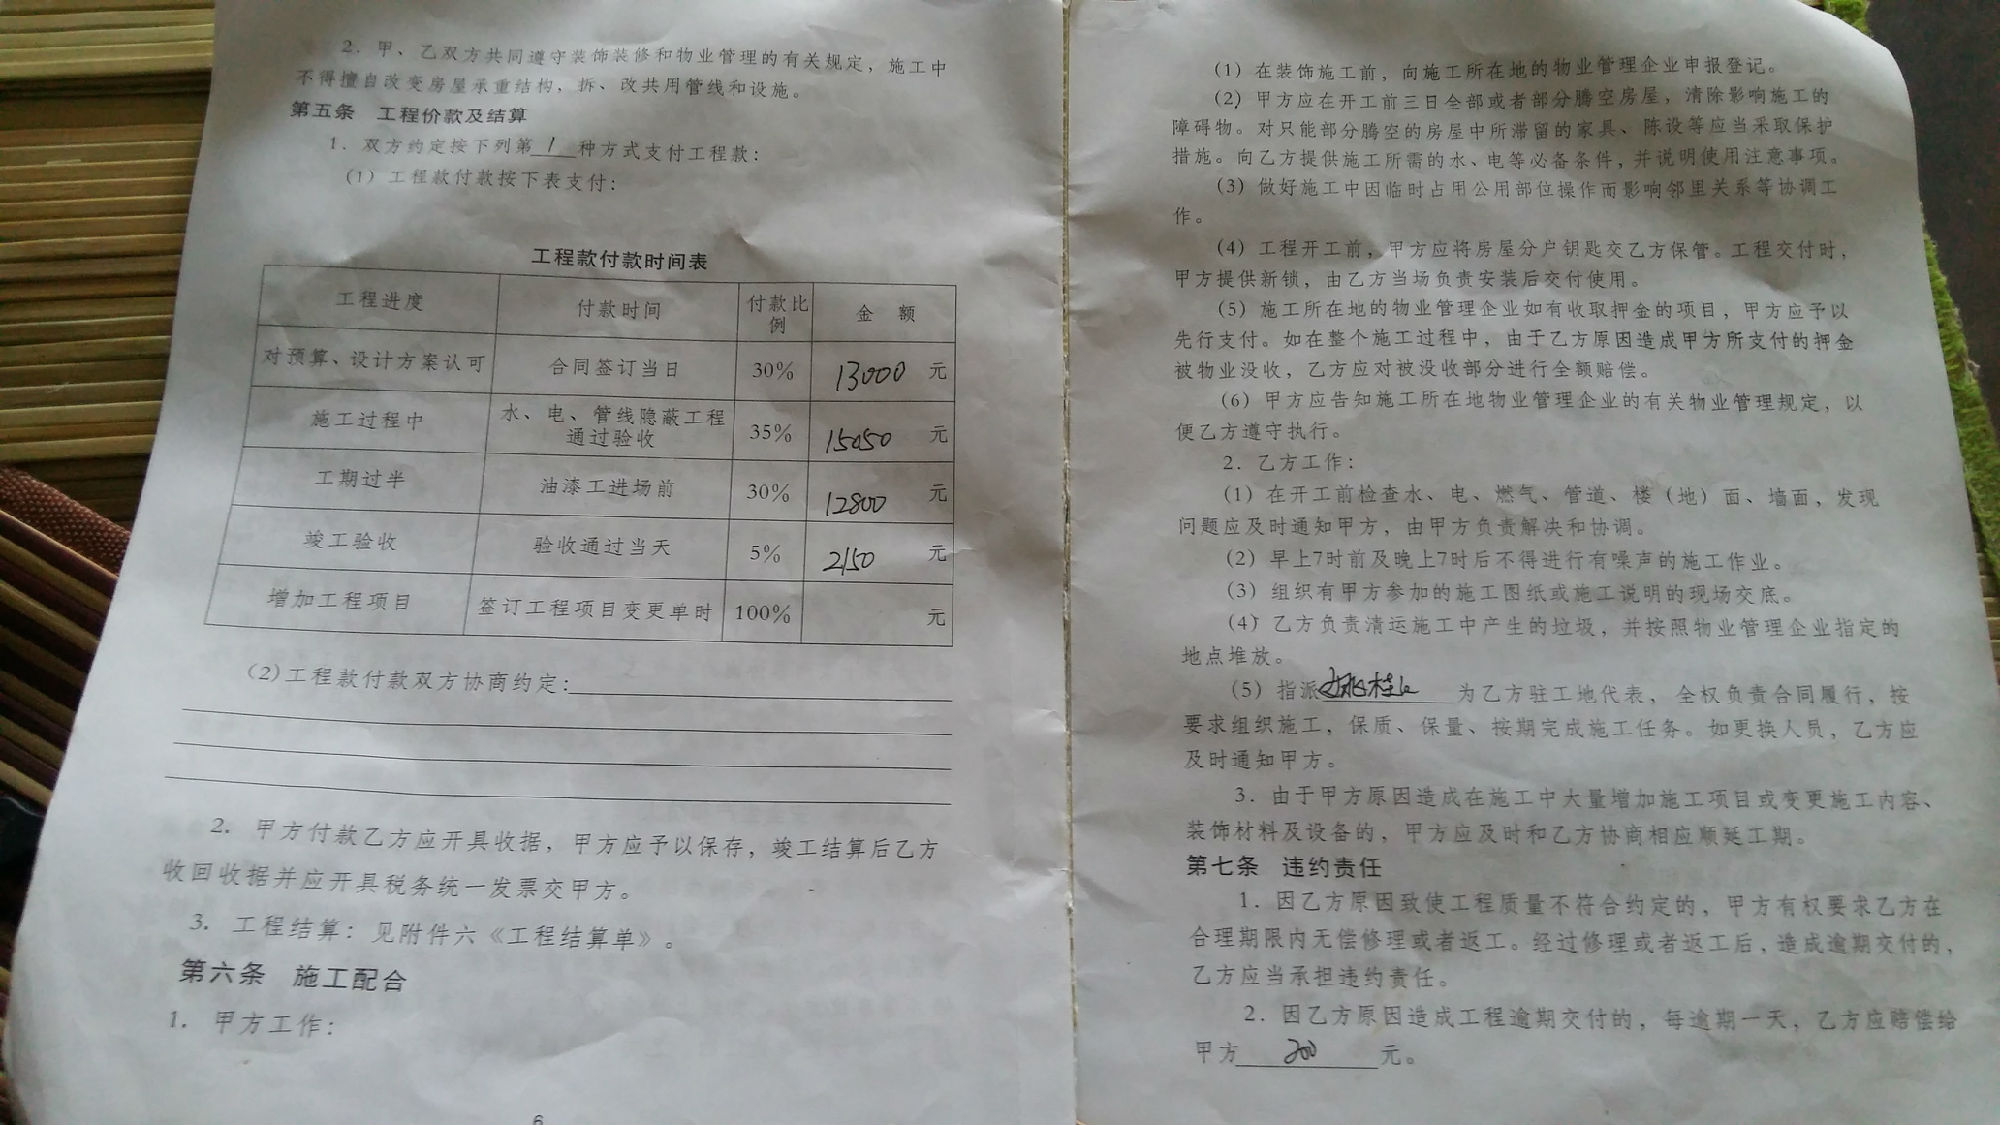 2. 甲、乙双方共同遵守装饰装修和物业管理的有关规定，施工中
不得擅自改变房屋承重结构，拆、改共用管线和设施。
第五条 工程价款及结算
1. 双方约定按下列第1种方式支付工程款：
(1) 工程款付款按下表支付：
工程款付款时间表
工程进度 付款时间 付款比例 金 额
对预算、设计方案认可 合同签订当日 30% 13000 元
施工过程中 水、电、管线隐蔽工程通过验收 35% 15050 元
工期过半 油漆工进场前 30% 12800 元
竣工验收 验收通过当天 5% 2150 元
增加工程项目 签订工程项目变更单时 100% 元
(2)工程款付款双方协商约定：
2. 甲方付款乙方应开具收据，甲方应予以保存，竣工结算后乙方
收回收据并应开具税务统一发票交甲方。
3. 工程结算：见附件六《工程结算单》。
第六条 施工配合
1. 甲方工作：
6
(1) 在装饰施工前，向施工所在地的物业管理企业申报登记。
(2) 甲方应在开工前三日全部或者部分腾空房屋，清除影响施工的
障碍物。对只能部分腾空的房屋中所滞留的家具、陈设等应当采取保护
措施。向乙方提供施工所需的水、电等必备条件，并说明使用注意事项。
(3) 做好施工中因临时占用公用部位操作而影响邻里关系等协调工
作。
(4) 工程开工前，甲方应将房屋分户钥匙交乙方保管。工程交付时，
甲方提供新锁，由乙方当场负责安装后交付使用。
(5) 施工所在地的物业管理企业如有收取押金的项目，甲方应予以
先行支付。如在整个施工过程中，由于乙方原因造成甲方所支付的押金
被物业没收，乙方应对被没收部分进行全额赔偿。
(6) 甲方应告知施工所在地物业管理企业的有关物业管理规定，以
便乙方遵守执行。
2. 乙方工作：
(1) 在开工前检查水、电、燃气、管道、楼（地）面、墙面，发现
问题应及时通知甲方，由甲方负责解决和协调。
(2) 早上7时前及晚上7时后不得进行有噪声的施工作业。
(3) 组织有甲方参加的施工图纸或施工说明的现场交底。
(4) 乙方负责清运施工中产生的垃圾，并按照物业管理企业指定的
地点堆放。
(5) 指派 为乙方驻工地代表，全权负责合同履行，按
要求组织施工，保质、保量、按期完成施工任务。如更换人员，乙方应
及时通知甲方。
3. 由于甲方原因造成在施工中大量增加施工项目或变更施工内容、
装饰材料及设备的，甲方应及时和乙方协商相应顺延工期。
第七条 违约责任
1. 因乙方原因致使工程质量不符合约定的，甲方有权要求乙方在
合理期限内无偿修理或者返工。经过修理或者返工后，造成逾期交付的，
乙方应当承担违约责任。
2. 因乙方原因造成工程逾期交付的，每逾期一天，乙方应赔偿给
甲方 200 元。